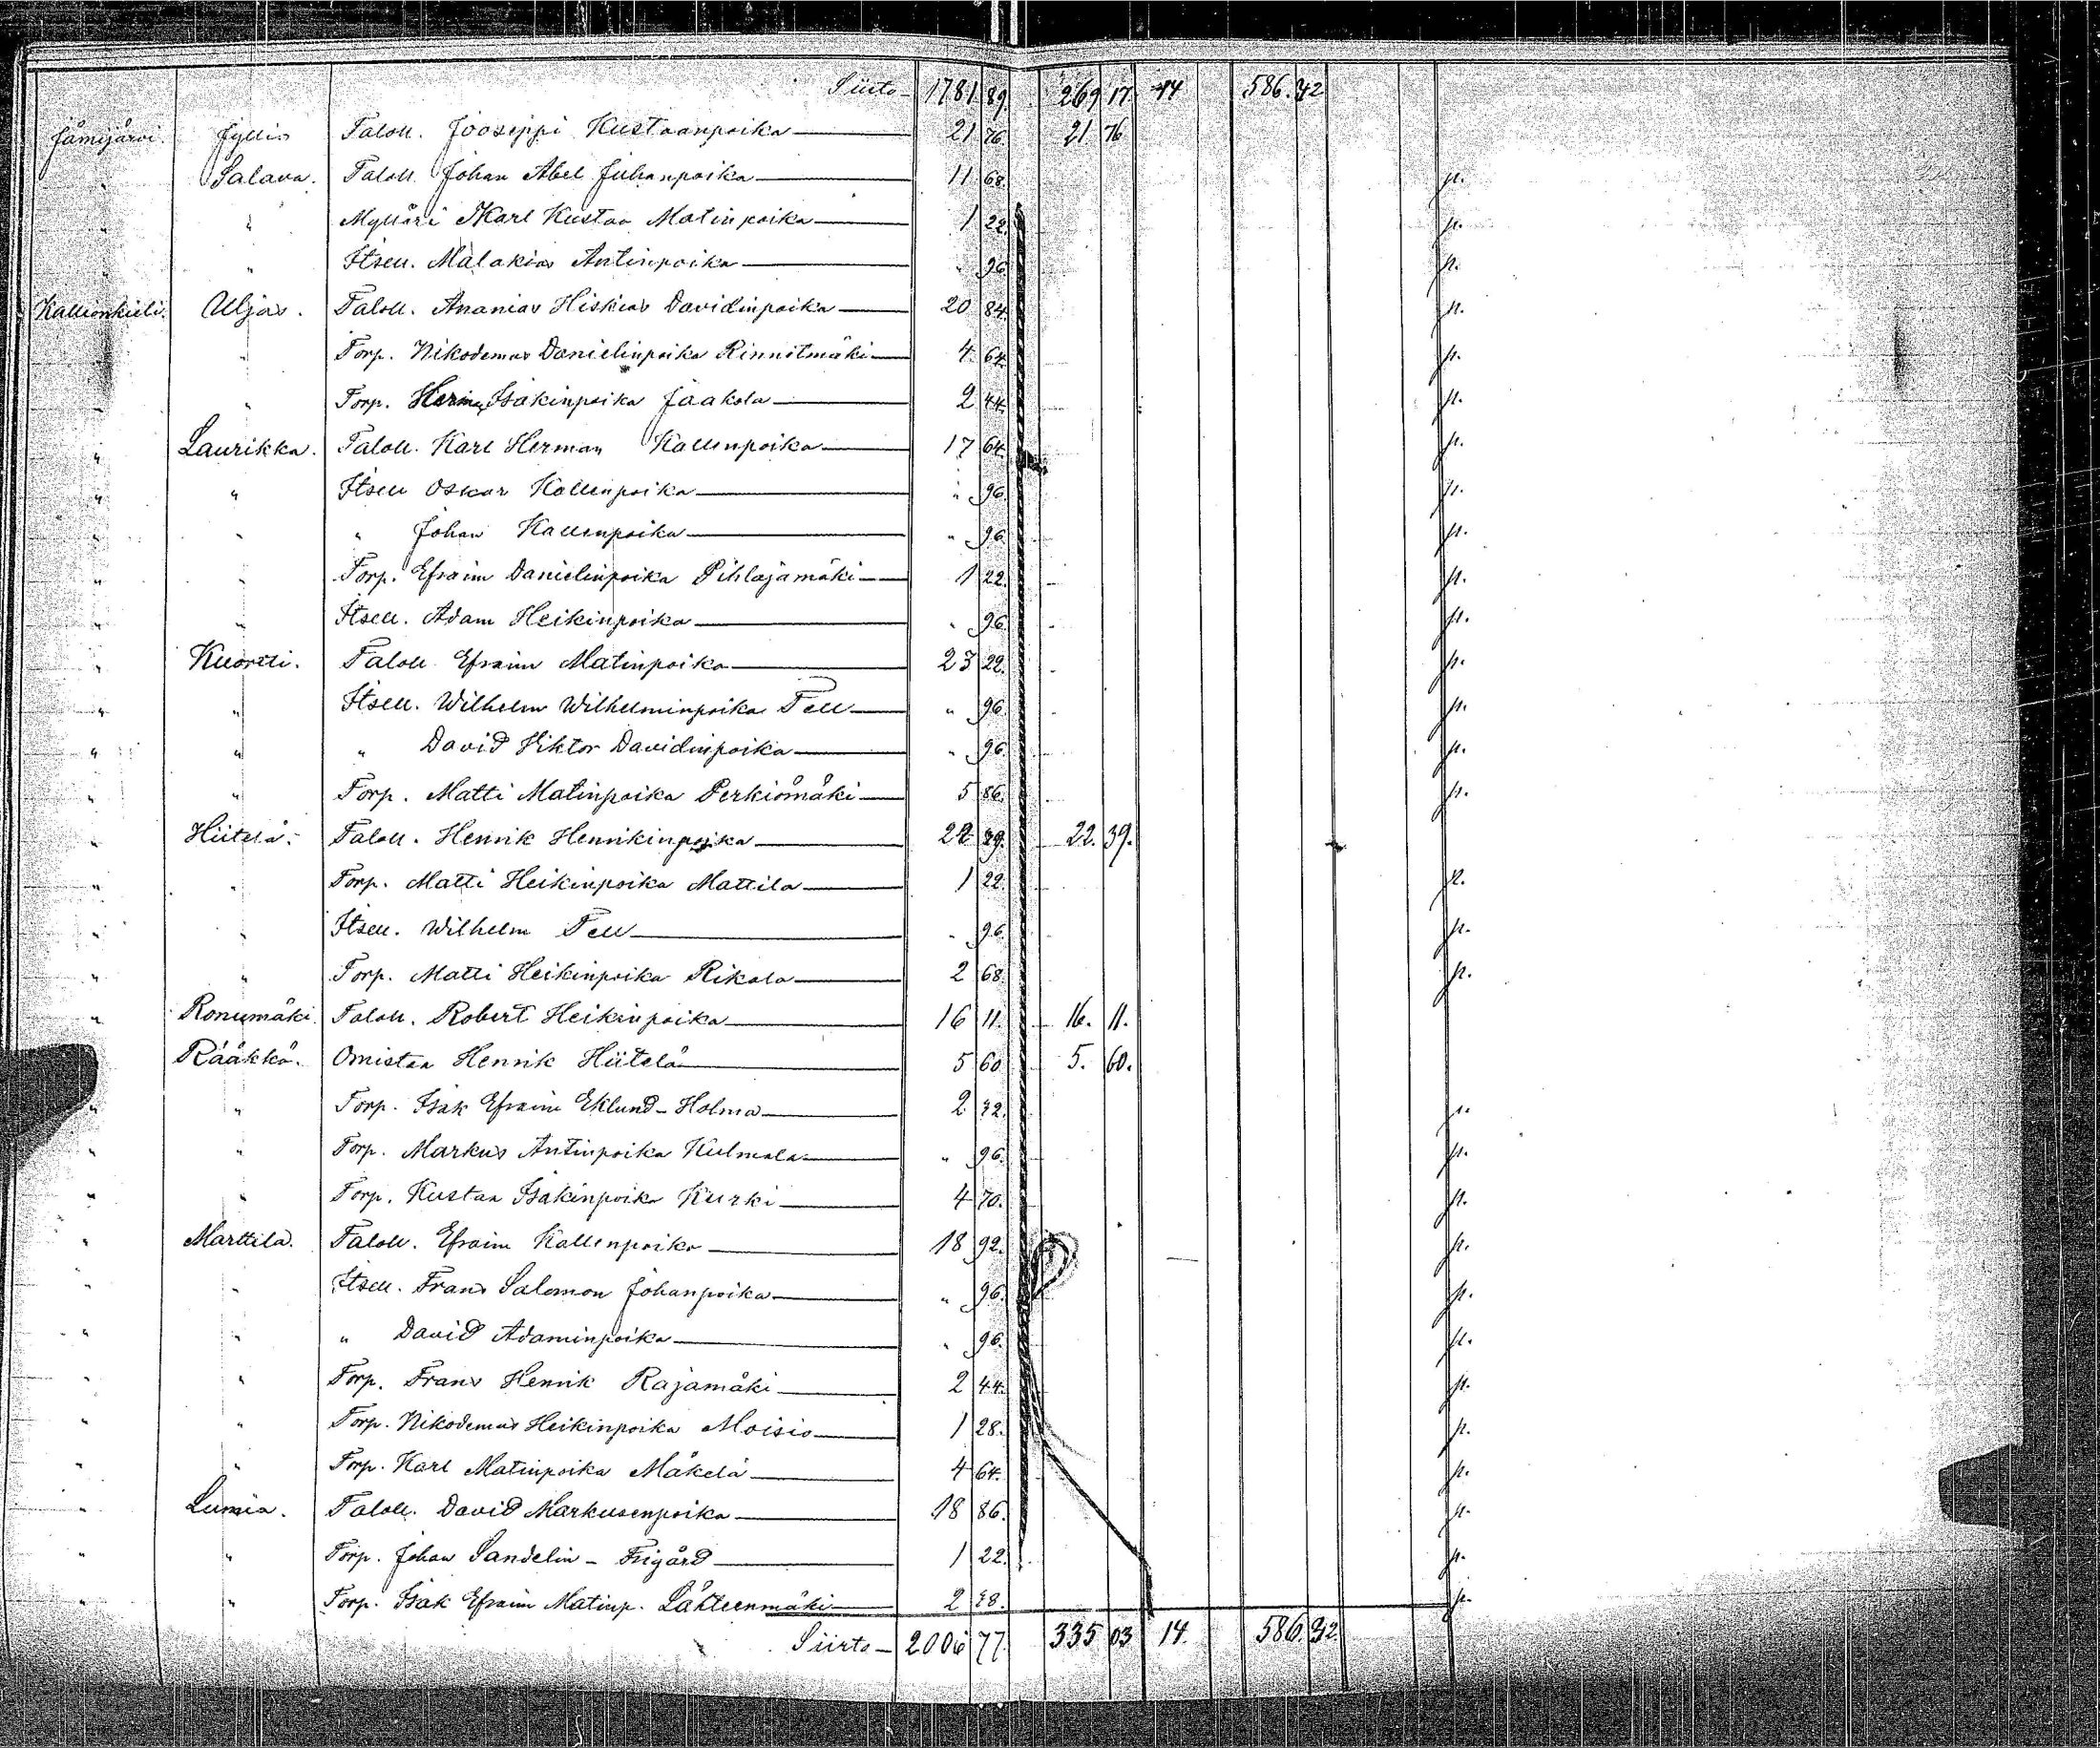 Siirto 1781 89. 269 17. 14 586. 32
Jämijärvi. Jyllis Taloll. Jooseppi Kustaanpoika 21 76. 21 76
" Salava. Taloll. Johan Abel Juhanpoika 11 68. p.
" " Mylläri Karl Kustaa Matinpoika 1 22. p.
" " Itsell. Malakias Antinpoika " 96. p.
Kallionkieli. Uljas. Taloll. Ananias Hiskias Davidinpoika 20 84. p.
" " Torp. Nikodemus Danielinpoika Rinnitmäki 4 64. p.
" " Torp. Herman Isakinpoika Jaakola 2 44. p.
" Laurikka. Taloll. Karl Herman Kallenpoika 17 64. p.
" " Itsell Oskar Kallenpoika " 96. p.
" " " Johan Kallenpoika " 96. p.
" " Torp. Efraim Danielinpoika Pihlajamäki 1 22. p.
" " Itsell. Adam Heikinpoika " 96. p.
" Kuortti. Taloll Efraim Matinpoika 23 22. p.
" " Itsell. Wilhelm Wilhelminpoika Fell " 96. p.
" " " David Viktor Davidinpoika " 96. p.
" " Torp. Matti Matinpoika Perkiömäki 5 86. p.
" Hiitelä. Taloll. Henrik Henrikinpoika 22 39. 22. 39.
" " Torp. Matti Heikinpoika Mattila 1 22. p.
" " Itsell. Wilhelm Fell " 96. p.
" " Torp. Matti Heikinpoika Rikala 2 68. p.
" Ronumäki. Taloll. Robert Heikinpoika 16 11. 16. 11.
" Rääkkö. Omistaa Henrik Hiitelä 5 60 5. 60.
" " Torp. Isak Efraim Eklund-Holma 2 32. p.
" " Torp. Markus Antinpoika Kulmala " 96. p.
" " Torp. Kustaa Isakinpoika Kurki 4 70. p.
" Marttila. Taloll. Efraim Kallenpoika 18 92. p.
" " Itsell. Frans Salomon Johanpoika " 96. p.
" " " David Adaminpoika " 96. p.
" " Torp. Frans Henrik Rajamäki 2 44. p.
" " Torp. Nikodemus Heikinpoika Moisio 1 28. p.
" " Torp. Karl Matinpoika Mäkelä 4 64. p.
" Lumia. Taloll. David Markusenpoika 18 86. p.
" " Torp. Johan Sandelin - Frigård 1 22. p.
" " Torp. Isak Efraim Matinp. Lähteenmäki 2 38. p.
Siirto 2006 77. 335 03 14. 586. 32